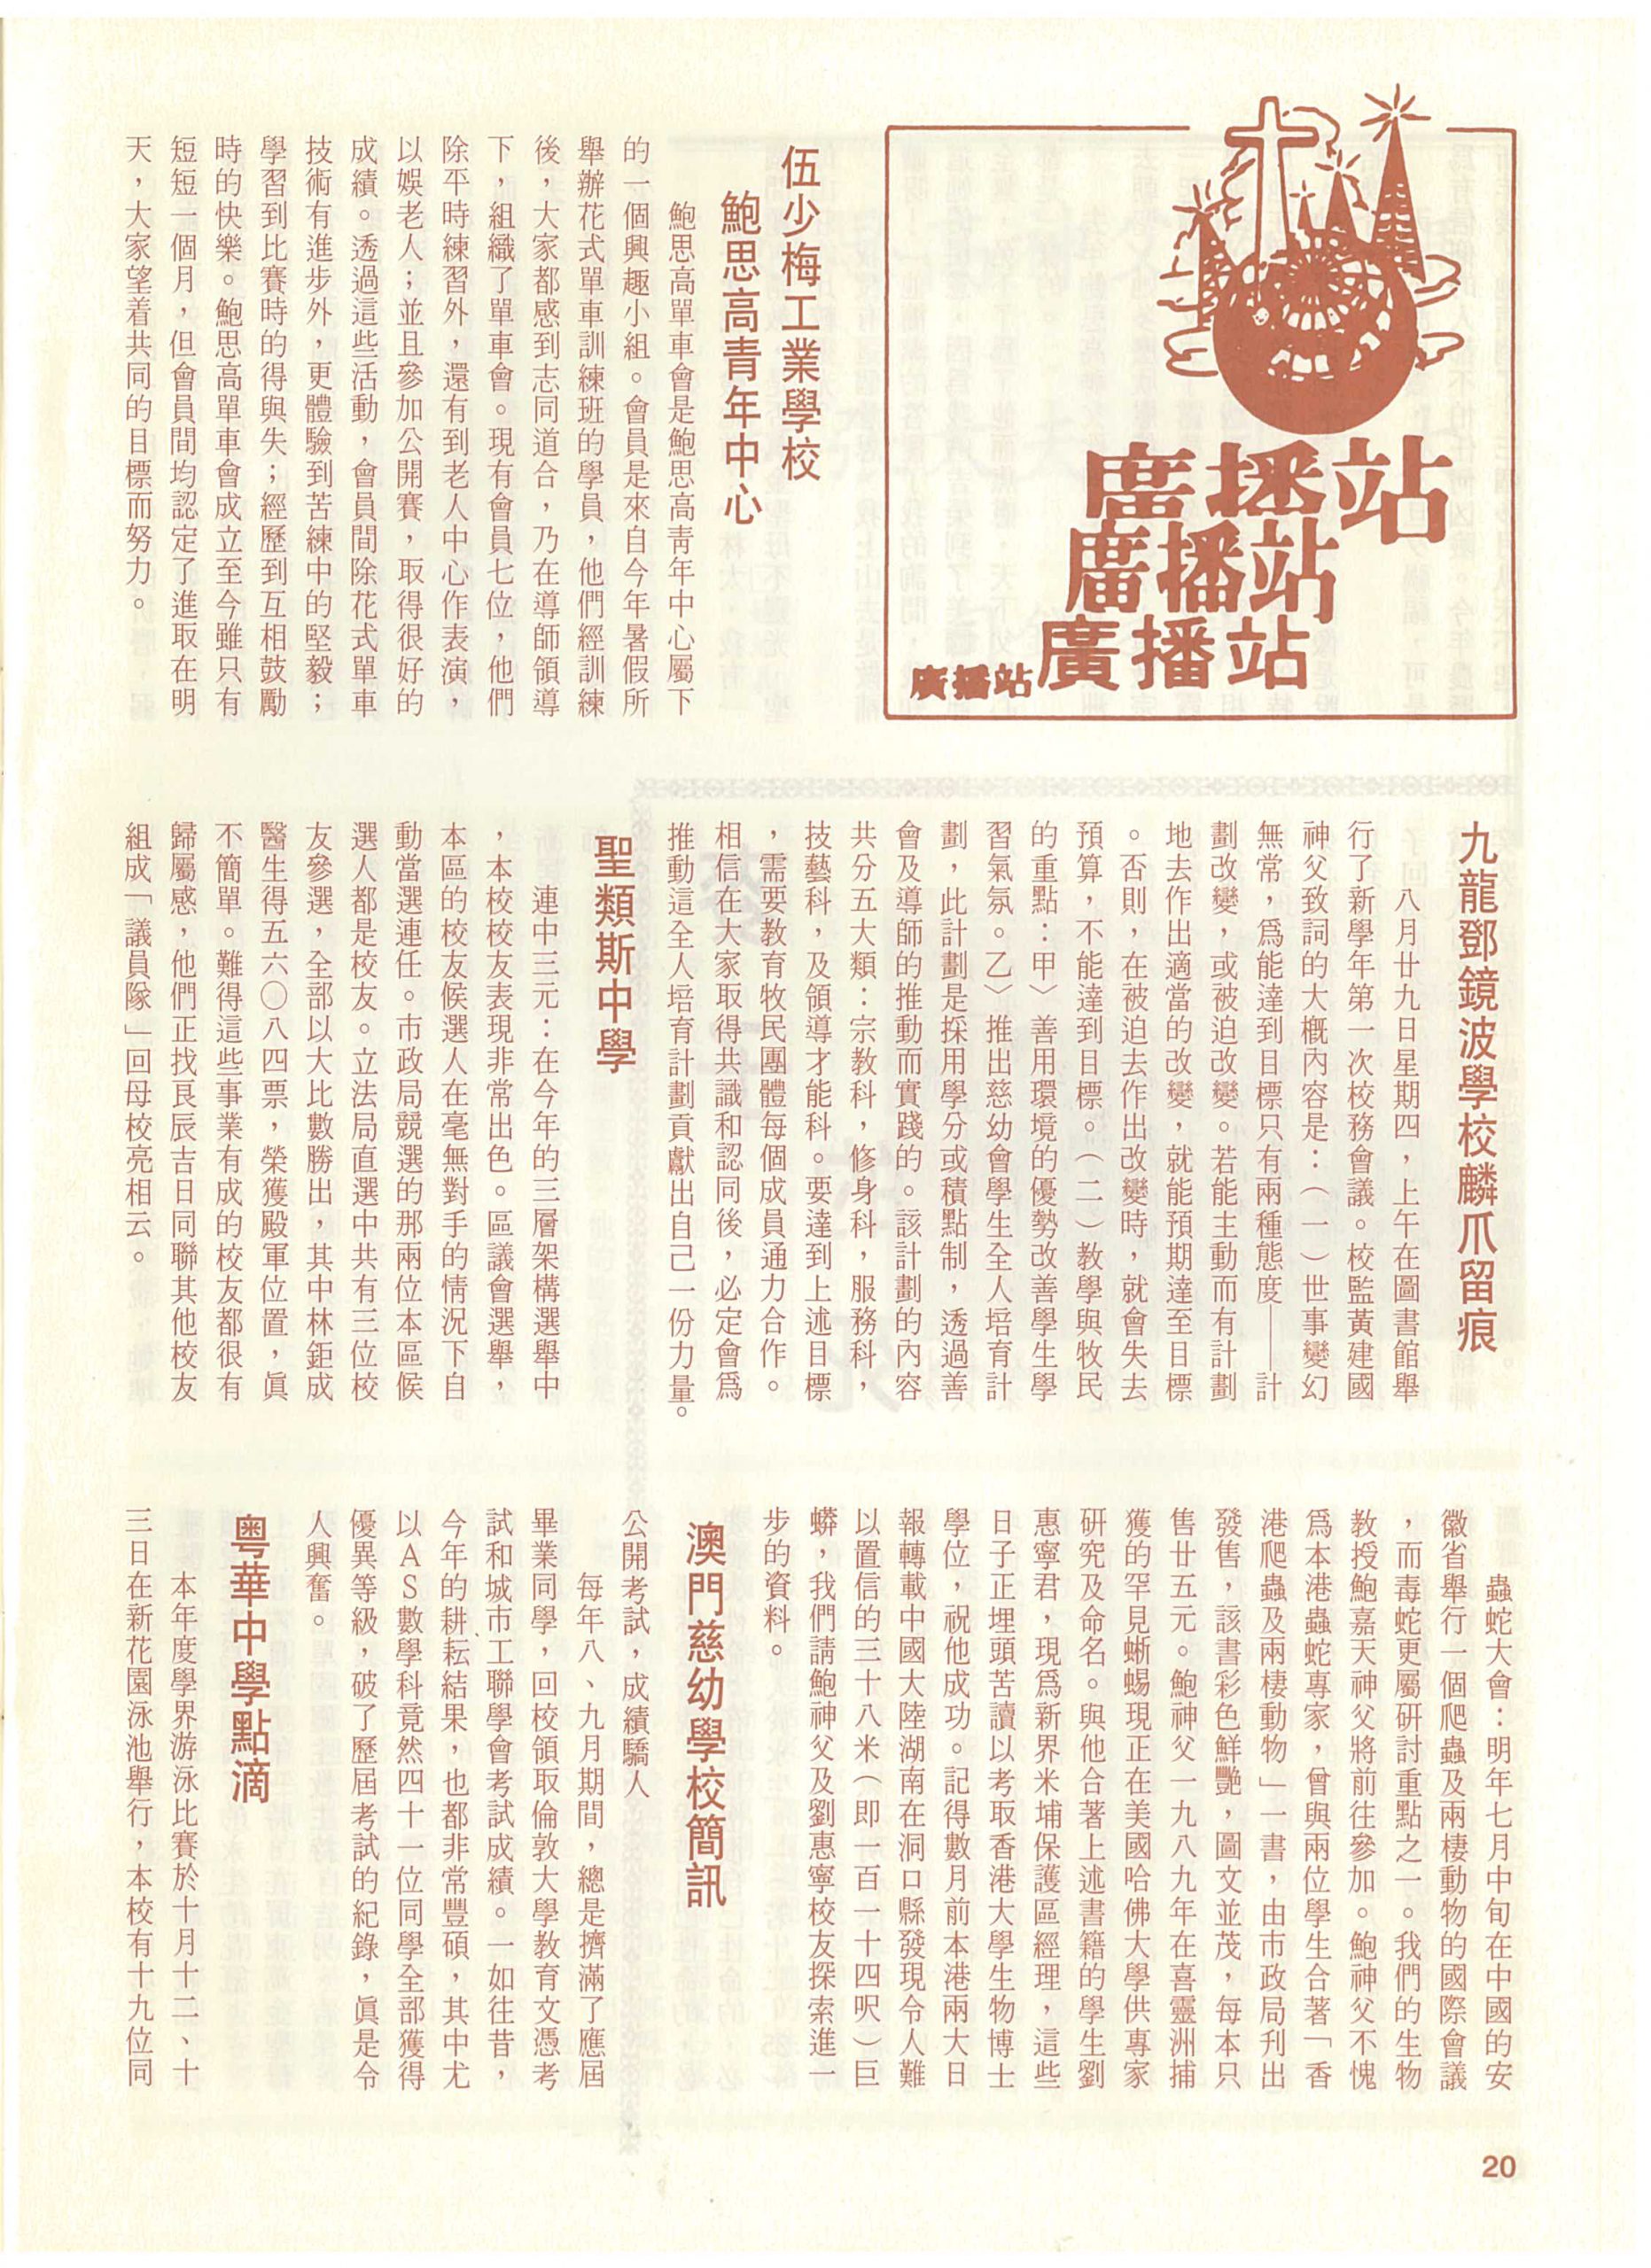 廣播站
廣播站
廣播站
廣播站
伍少梅工業學校
鮑思高青年中心
鮑思高單車會是鮑思高青年中心屬下
的一個興趣小組。會員是來自今年暑假所
舉辦花式單車訓練班的學員，他們經訓練
後，大家都感到志同道合，乃在導師領導
下，組織了單車會。現有會員七位，他們
除平時練習外，還有到老人中心作表演，
以娛老人；並且參加公開賽，取得很好的
成績。透過這些活動，會員間除花式單車
技術有進步外，更體驗到苦練中的堅毅；
學習到比賽時的得與失；經歷到互相鼓勵
時的快樂。鮑思高單車會成立至今雖只有
短短一個月，但會員間均認定了進取在明
天，大家望着共同的目標而努力。
九龍鄧鏡波學校麟爪留痕
八月廿九日星期四，上午在圖書館舉
行了新學年第一次校務會議。校監黃建國
神父致詞的大概內容是：（一）世事變幻
無常，爲能達到目標只有兩種態度——計
劃改變，或被迫改變。若能主動而有計劃
地去作出適當的改變，就能預期達至目標
。否則，在被迫去作出改變時，就會失去
預算，不能達到目標。（二）教學與牧民
的重點：甲〉善用環境的優勢改善學生學
習氣氛。乙〉推出慈幼會學生全人培育計
劃，此計劃是採用學分或積點制，透過善
會及導師的推動而實踐的。該計劃的內容
共分五大類：宗教科，修身科，服務科，
技藝科，及領導才能科。要達到上述目標
，需要教育牧民團體每個成員通力合作。
相信在大家取得共識和認同後，必定會爲
推動這全人培育計劃貢獻出自己一份力量。
聖類斯中學
連中三元：在今年的三層架構選舉中
，本校校友表現非常出色。區議會選舉，
本區的校友候選人在毫無對手的情況下自
動當選連任。市政局競選的那兩位本區候
選人都是校友。立法局直選中共有三位校
友參選，全部以大比數勝出，其中林鉅成
醫生得五六〇八四票，榮獲殿軍位置，眞
不簡單。難得這些事業有成的校友都很有
歸屬感，他們正找良辰吉日同聯其他校友
組成「議員隊」回母校亮相云。
蟲蛇大會：明年七月中旬在中國的安
徽省舉行一個爬蟲及兩棲動物的國際會議
，而毒蛇更屬研討重點之一。我們的生物
教授鮑嘉天神父將前往參加。鮑神父不愧
爲本港蟲蛇專家，曾與兩位學生合著「香
港爬蟲及兩棲動物」一書，由市政局刋出
發售，該書彩色鮮艷，圖文並茂，每本只
售廿五元。鮑神父一九八九年在喜靈洲捕
獲的罕見蜥蜴現正在美國哈佛大學供專家
研究及命名。與他合著上述書籍的學生劉
惠寧君，現爲新界米埔保護區經理，這些
日子正埋頭苦讀以考取香港大學生物博士
學位，祝他成功。記得數月前本港兩大日
報轉載中國大陸湖南在洞口縣發現令人難
以置信的三十八米（即一百一十四呎）巨
蟒，我們請鮑神父及劉惠寧校友探索進一
步的資料。
澳門慈幼學校簡訊
公開考試，成績驕人
每年八、九月期間，總是擠滿了應屆
畢業同學，回校領取倫敦大學教育文憑考
試和城市工聯學會考試成績。一如往昔，
今年的耕耘結果，也都非常豐碩，其中尤
以AS數學科竟然四十一位同學全部獲得
優異等級，破了歷屆考試的紀錄，眞是令
人興奮。
粤華中學點滴
本年度學界游泳比賽於十月十二、十
三日在新花園泳池舉行，本校有十九位同
20